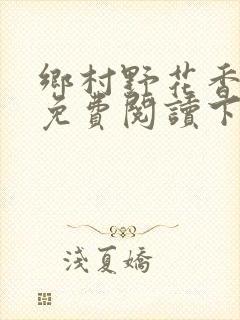 鄉村野花香
免費閱讀下
淺夏嬌